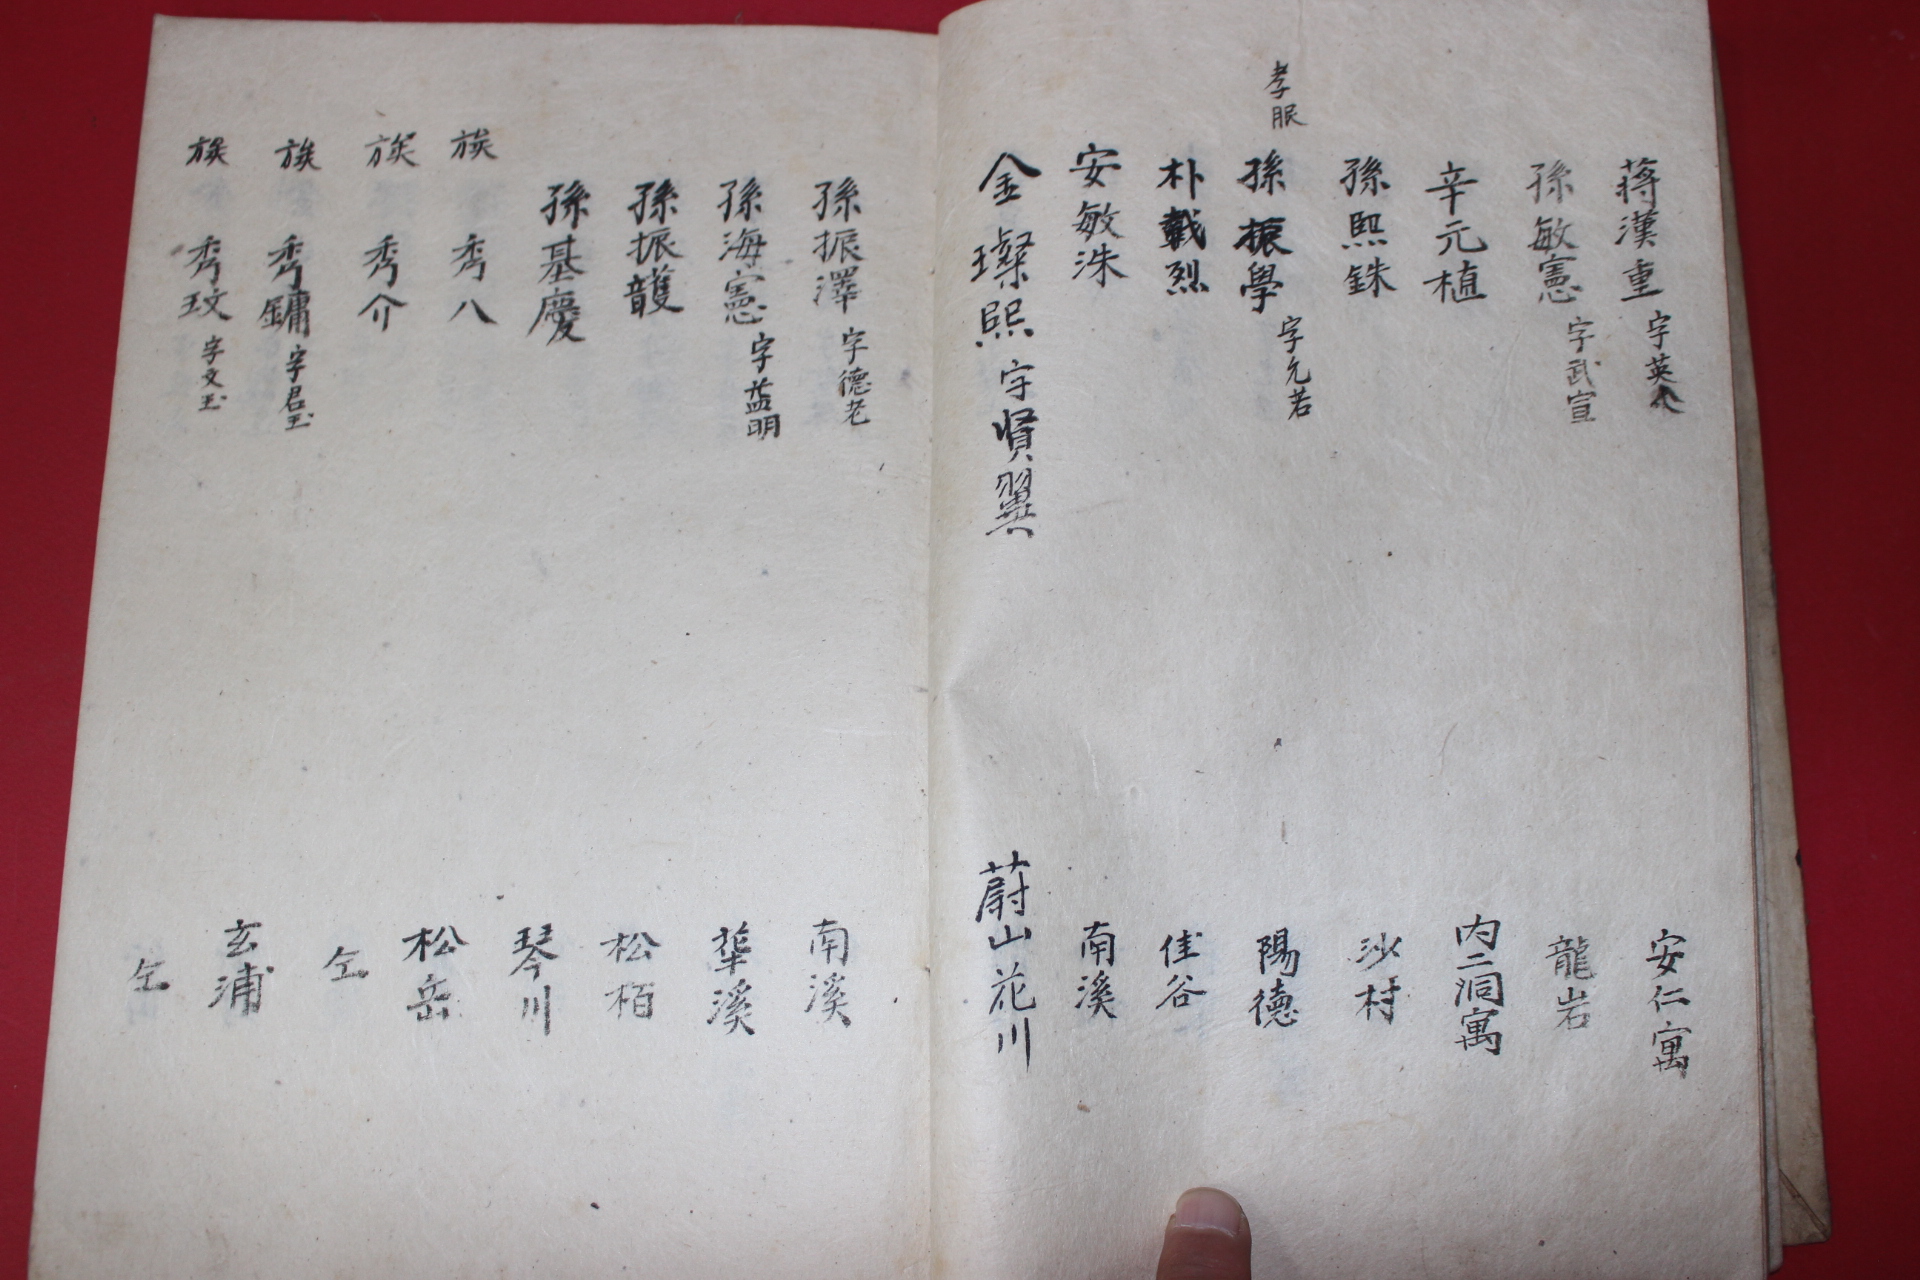 蔣漢重 字英 安仁寓
孫敏憲 字武宣 龍岩
辛元植 内二洞寓
孫熙銖 沙村
孝服 孫振學 字允若 陽德
朴載烈 佳谷
安敏洙 南溪
金璨熙 字賢翼 蔚山花川
孫振澤 字德老 南溪
孫海憲 字益明 華溪
孫振頀 松栢
孫基慶 琴川
族 秀八 松岳
族 秀介 仝
族 秀鏞 字君玉 玄浦
族 秀玟 字文玉 仝